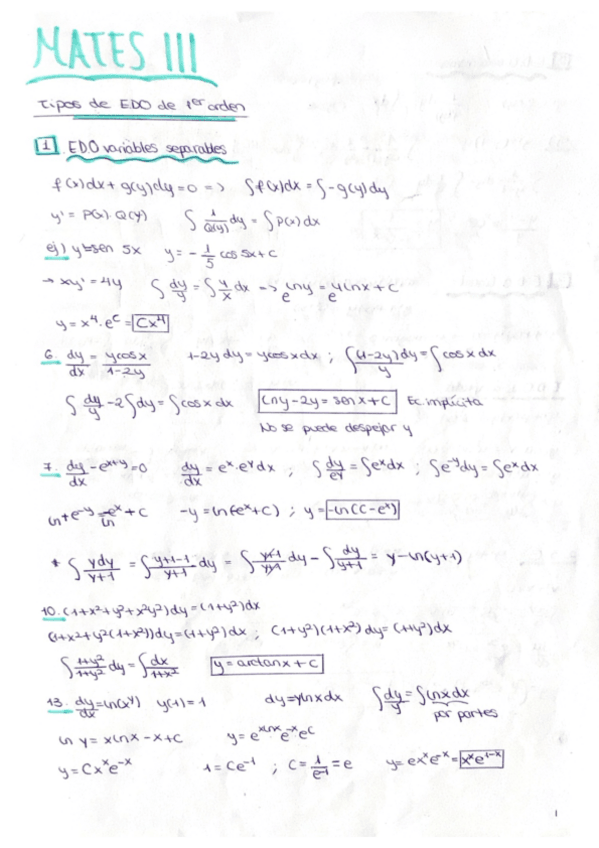 MATES III
Tipos de EDO de 1er orden
1 EDO variables separables
f(x)dx + g(y)dy = 0 => ∫f(x)dx = ∫-g(y)dy
y' = P(x)·Q(y) ∫ 1/Q(y) dy = ∫P(x)dx
ej) y'=sen 5x y = -1/5 cos 5x + C
→ xy' = 4y ∫ dy/y = ∫ 4/x dx -> e^lny = e^4lnx + C
y = x⁴·e^c = Cx⁴
6. dy/dx = ycosx/1-2y 1-2y dy = ycosxdx ; ∫(1-2y)dy/y = ∫cosxdx
∫ dy/y - 2∫dy = ∫cosx dx lny - 2y = senx + C Ec. implícita
No se puede despejar y
7. dy/dx - e^x+y = 0 dy/dx = e^x·e^y dx ; ∫ dy/e^y = ∫e^x dx ; ∫e^-y dy = ∫e^x dx
ln + e^-y = -e^x + C -y = ln(-e^x + C) ; y = -ln(C-e^x)
* ∫ ydy/y+1 = ∫ y+1-1/y+1 dy = ∫ y+1/y+1 dy - ∫ dy/y+1 = y - ln(y+1)
10. (1+x²+y²+x²y²)dy = (1+y²)dx
(1+x²+y²(1+x²))dy = (1+y²)dx ; (1+y²)(1+x²)dy = (1+y²)dx
∫ 1+y²/1+y² dy = ∫ dx/1+x² y = arctanx + C
13. dy/dx = ln(x^y) y(1) = 1 dy = ylnxdx ∫ dy/y = ∫lnxdx
por partes
ln y = xlnx - x + C y = e^xlnx e^-x e^C
y = Cx^x e^-x 1 = Ce^-1 ; C = 1/e^-1 = e y = ex^x e^-x = x^x e^1-x
1